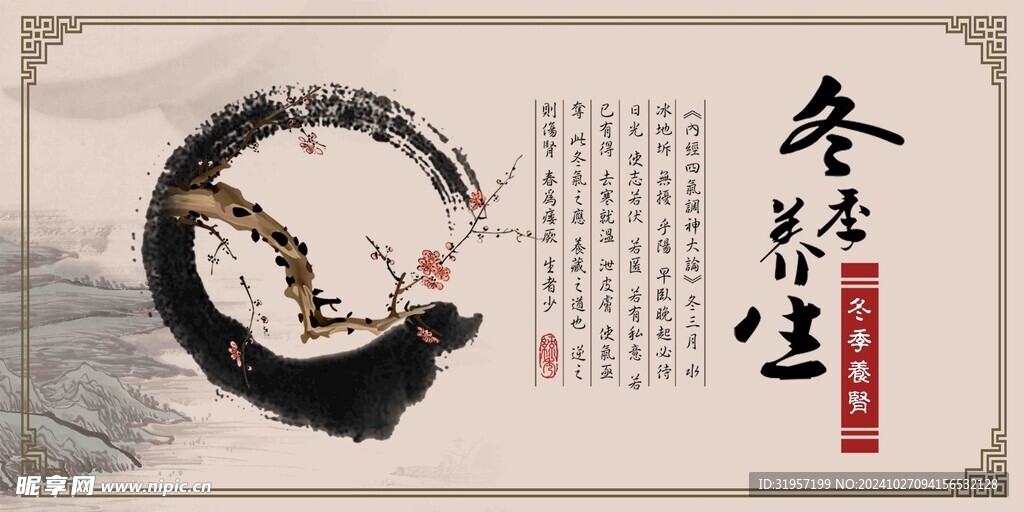 冬季养生
冬季養腎
《內經四氣調神大論》冬三月 水
冰地坼 無擾 乎陽 早臥晚起必待
日光 使志若伏 若匿 若有私意 若
已有得 去寒就溫 泄皮膚 使氣亟
奪 此冬氣之應 養藏之道也 逆之
則傷腎 春為痿厥 生者少
昵享网 www.nipic.cn
ID:31957199 NO:20241027094156532128